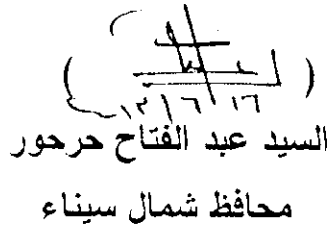 (        )
١٦/٦/١٣
السيد عبد الفتاح حرحور
محافظ شمال سيناء